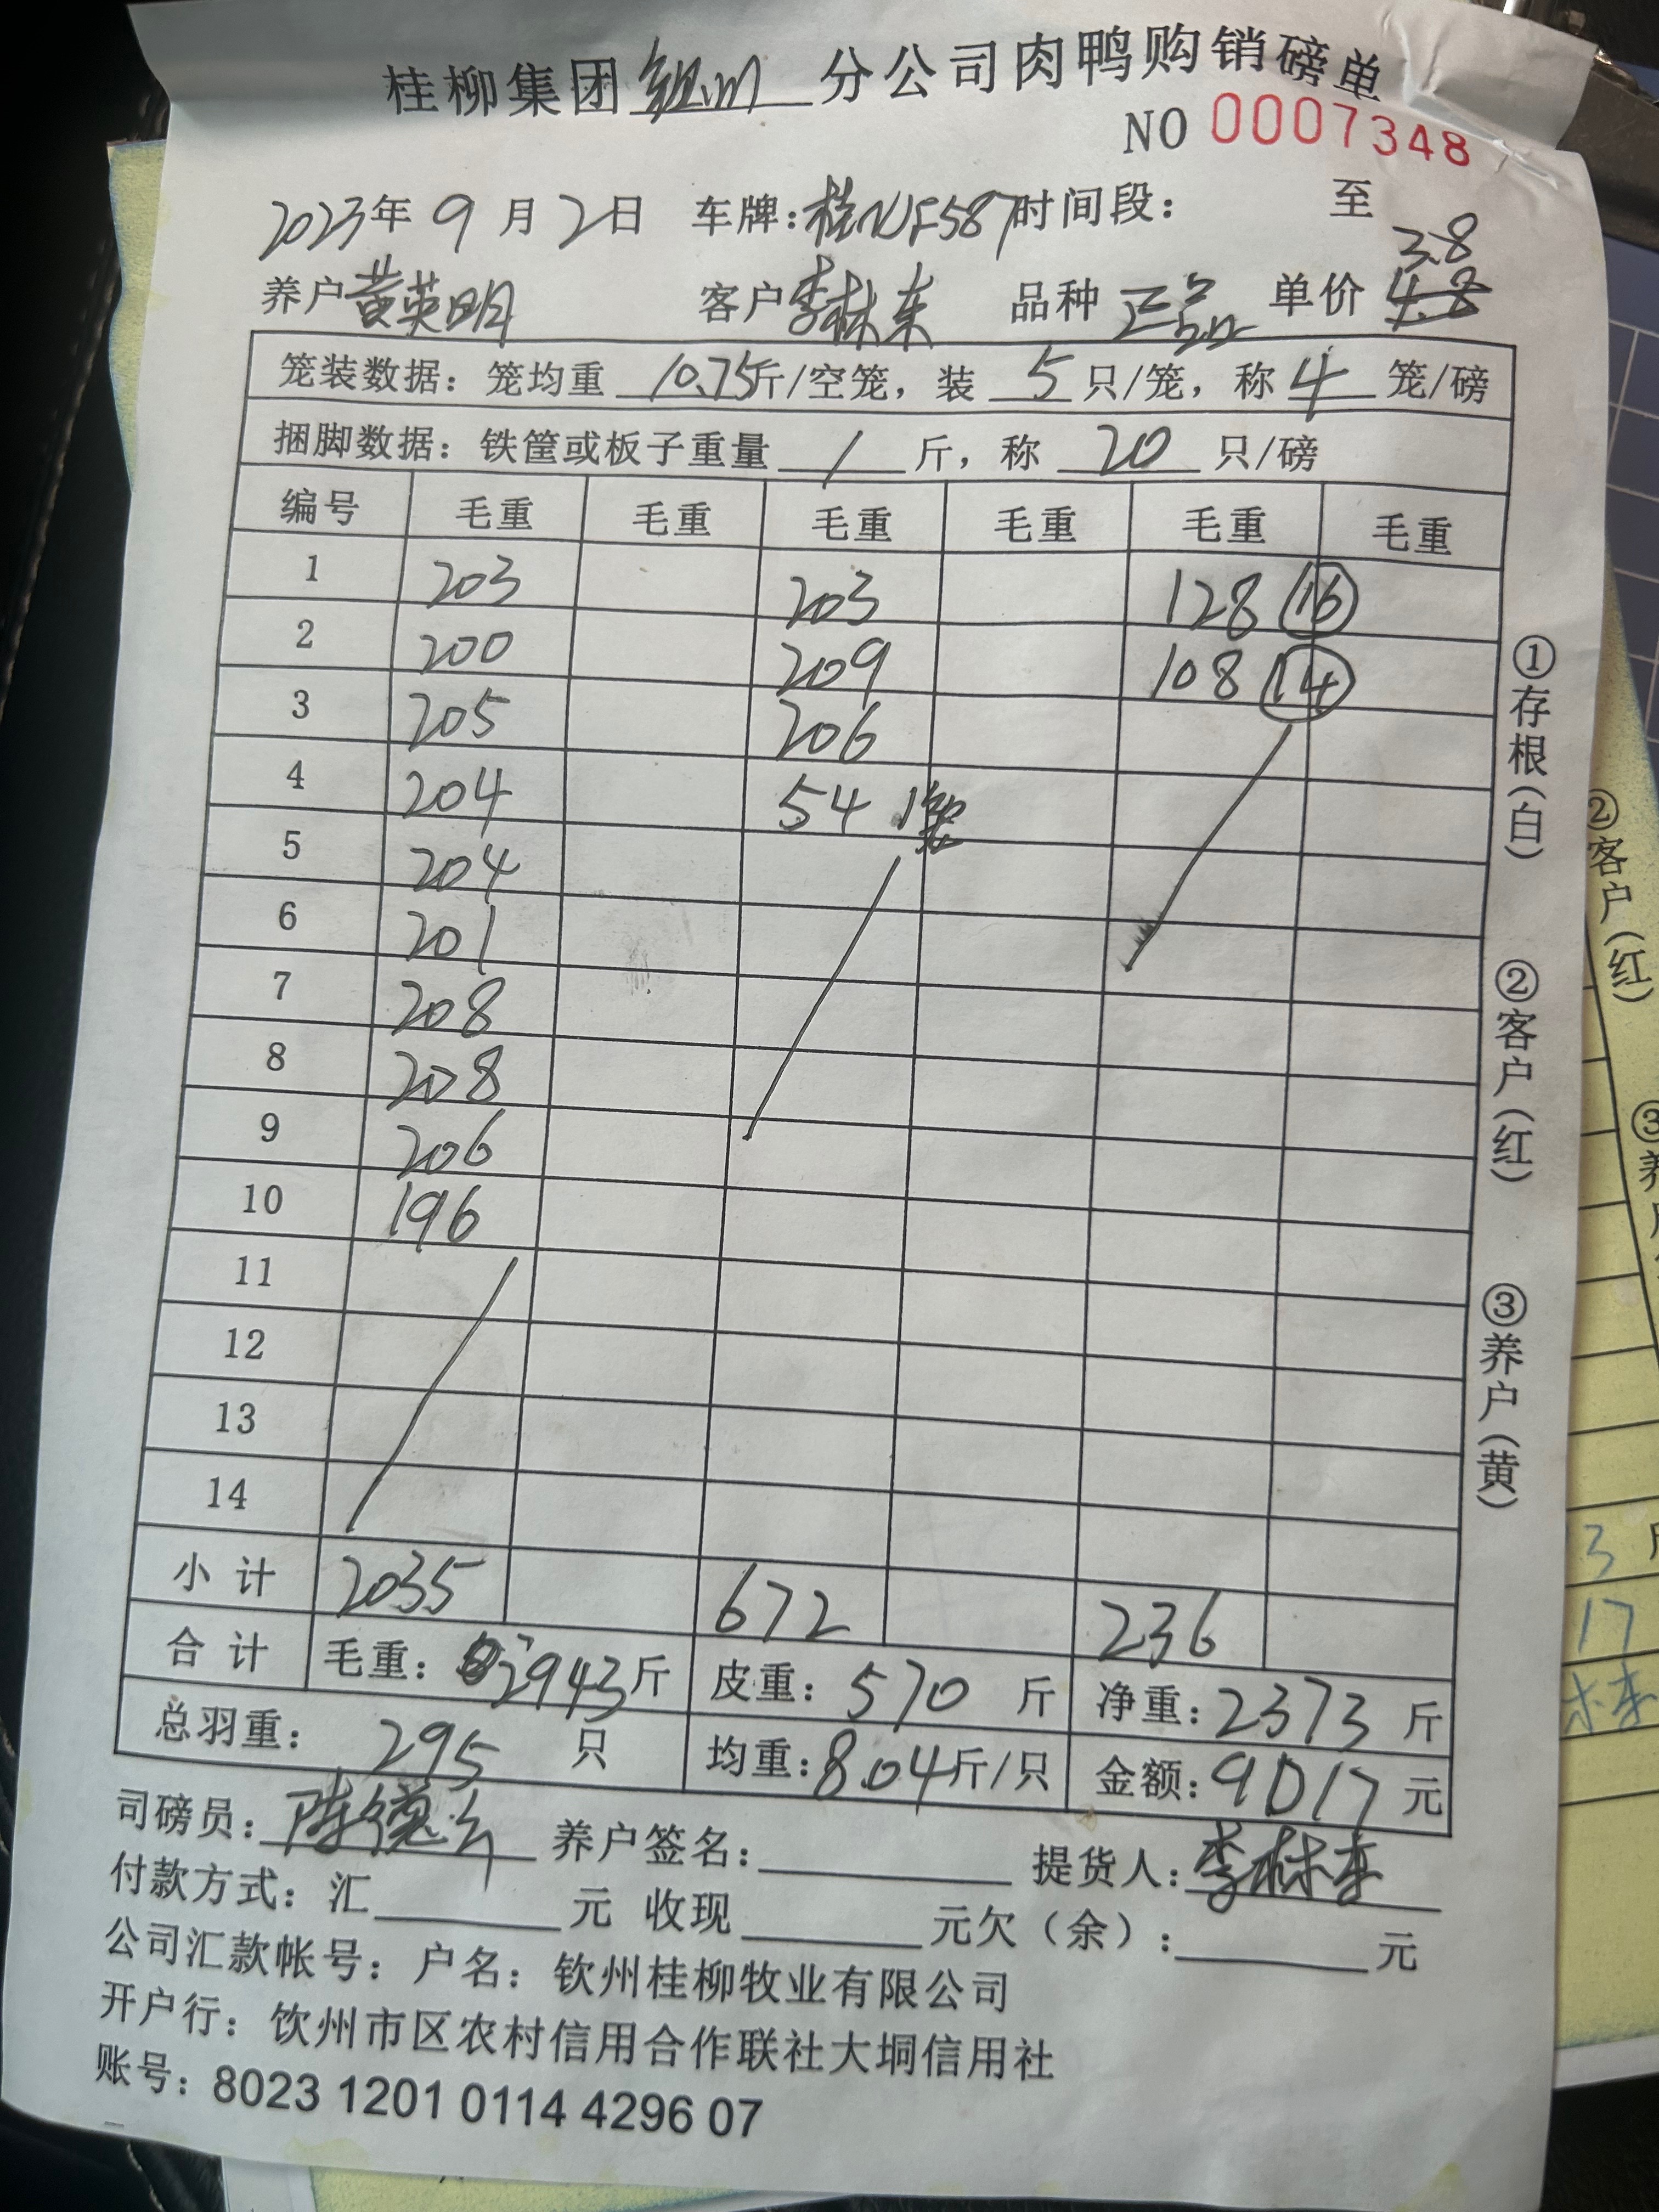 桂柳集团钦州分公司肉鸭购销磅单
NO 0007348
2023年 9月 2日 车牌：桂NF587 时间段： 至
3.8
养户 黄英明 客户 李林东 品种 正品 单价 4.8
笼装数据：笼均重 10.75 斤/空笼，装 5 只/笼，称 4 笼/磅
捆脚数据：铁筐或板子重量 / 斤，称 20 只/磅
编号 毛重 毛重 毛重 毛重 毛重 毛重
1 203 203 128 16
2 200 209 108 14
3 205 206
4 204 54 1笼
5 204
6 201
7 208
8 208
9 206
10 196
11
12
13
14
小计 2035 672 236
合计 毛重：2943斤 皮重：570 斤 净重：2373 斤
总羽重： 295 只 均重：8.04斤/只 金额：9017元
司磅员： 养户签名： 提货人：李林东
付款方式：汇 元 收现 元欠（余）： 元
公司汇款帐号：户名：钦州桂柳牧业有限公司
开户行：饮州市区农村信用合作联社大垌信用社
账号：8023 1201 0114 4296 07
①存根（白）
②客户（红）
③养户（黄）
②客户（红）
③养
3
17